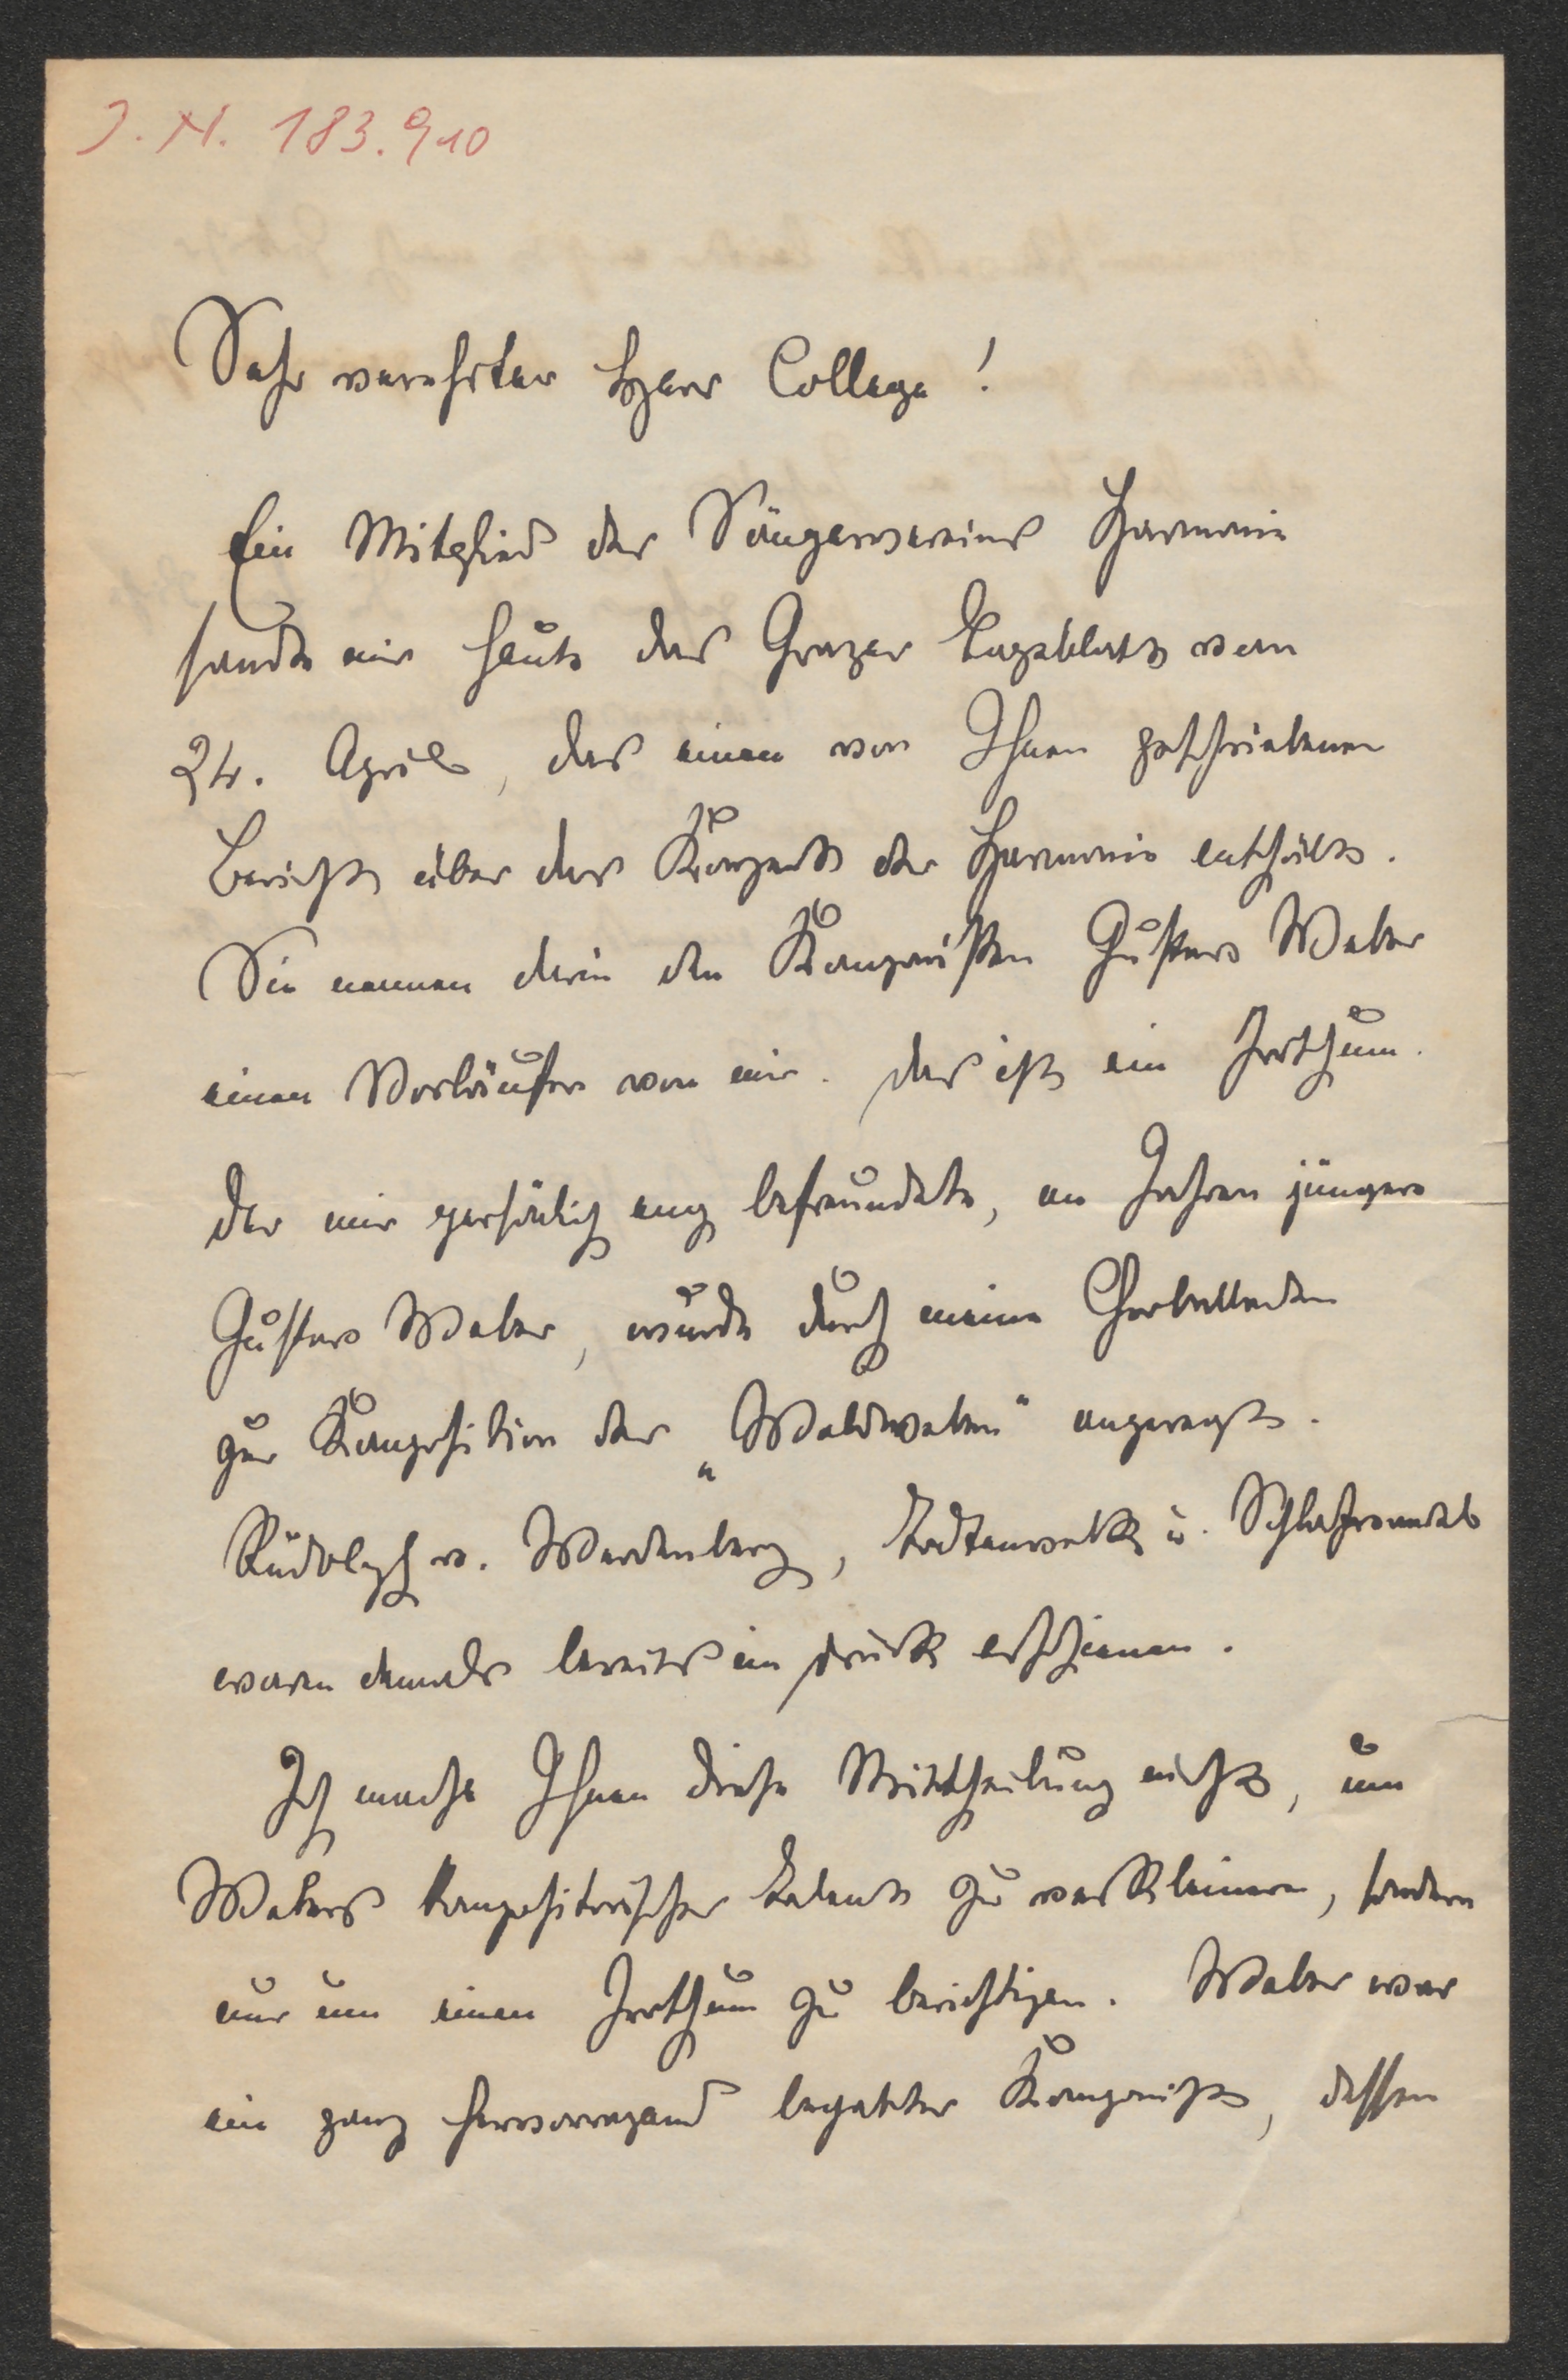 J. N. 183.910
Sehr verehrter Herr College!
Ein Mitglied des Sängervereins Harmonie
sandte mir heute das Grazer Tagblatt vom
24. April, das einen von Ihnen geschriebenen
Bericht über das Konzert der Harmonie enthält.
Sie nennen darin den Komponisten Gustav Weber
einen Vorläufer von mir. Das ist ein Irrthum.
Der mir persönlich eng befreundete, an Jahren jüngere
Gustav Weber, wurde durch meine Chorballaden
zur Komposition der „Waldweben" angeregt.
Rudolph v. Werdenberg, Todtenvolk u. Schlafwandel
waren damals bereits im Druck erschienen.
Ich mache Ihnen diese Mittheilung nicht, um
Webers kompositorisches Talent zu verkleinern, sondern
nur um einen Irrthum zu berichtigen. Weber war
ein ganz hervorragend begabter Komponist, dessen